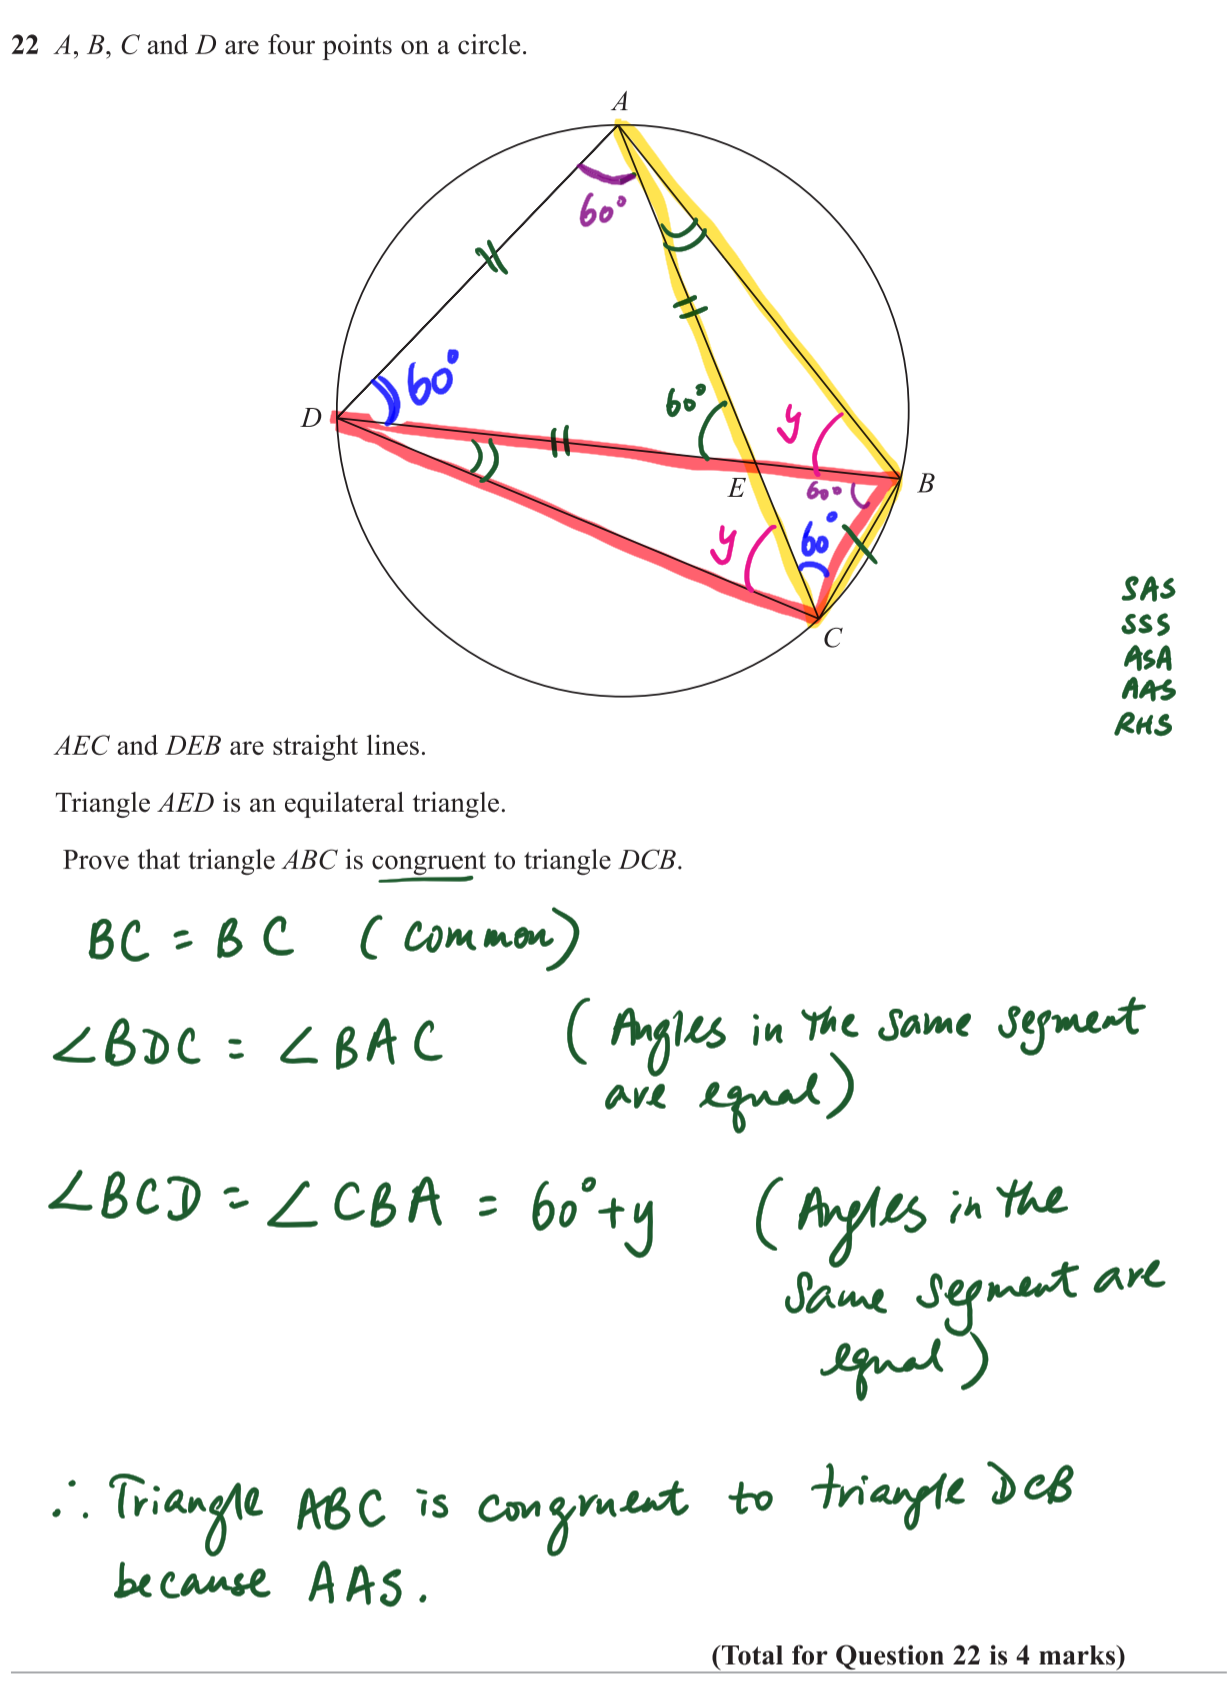 22 A, B, C and D are four points on a circle.
A
60°
60°
60°
y
D
E
60°
B
y
60°
C
SAS
SSS
ASA
AAS
RHS
AEC and DEB are straight lines.
Triangle AED is an equilateral triangle.
Prove that triangle ABC is congruent to triangle DCB.
BC = BC (common)
∠BDC = ∠BAC (Angles in the same segment
are equal)
∠BCD = ∠CBA = 60° + y (Angles in the
same segment are
equal)
∴ Triangle ABC is congruent to triangle DCB
because AAS.
(Total for Question 22 is 4 marks)